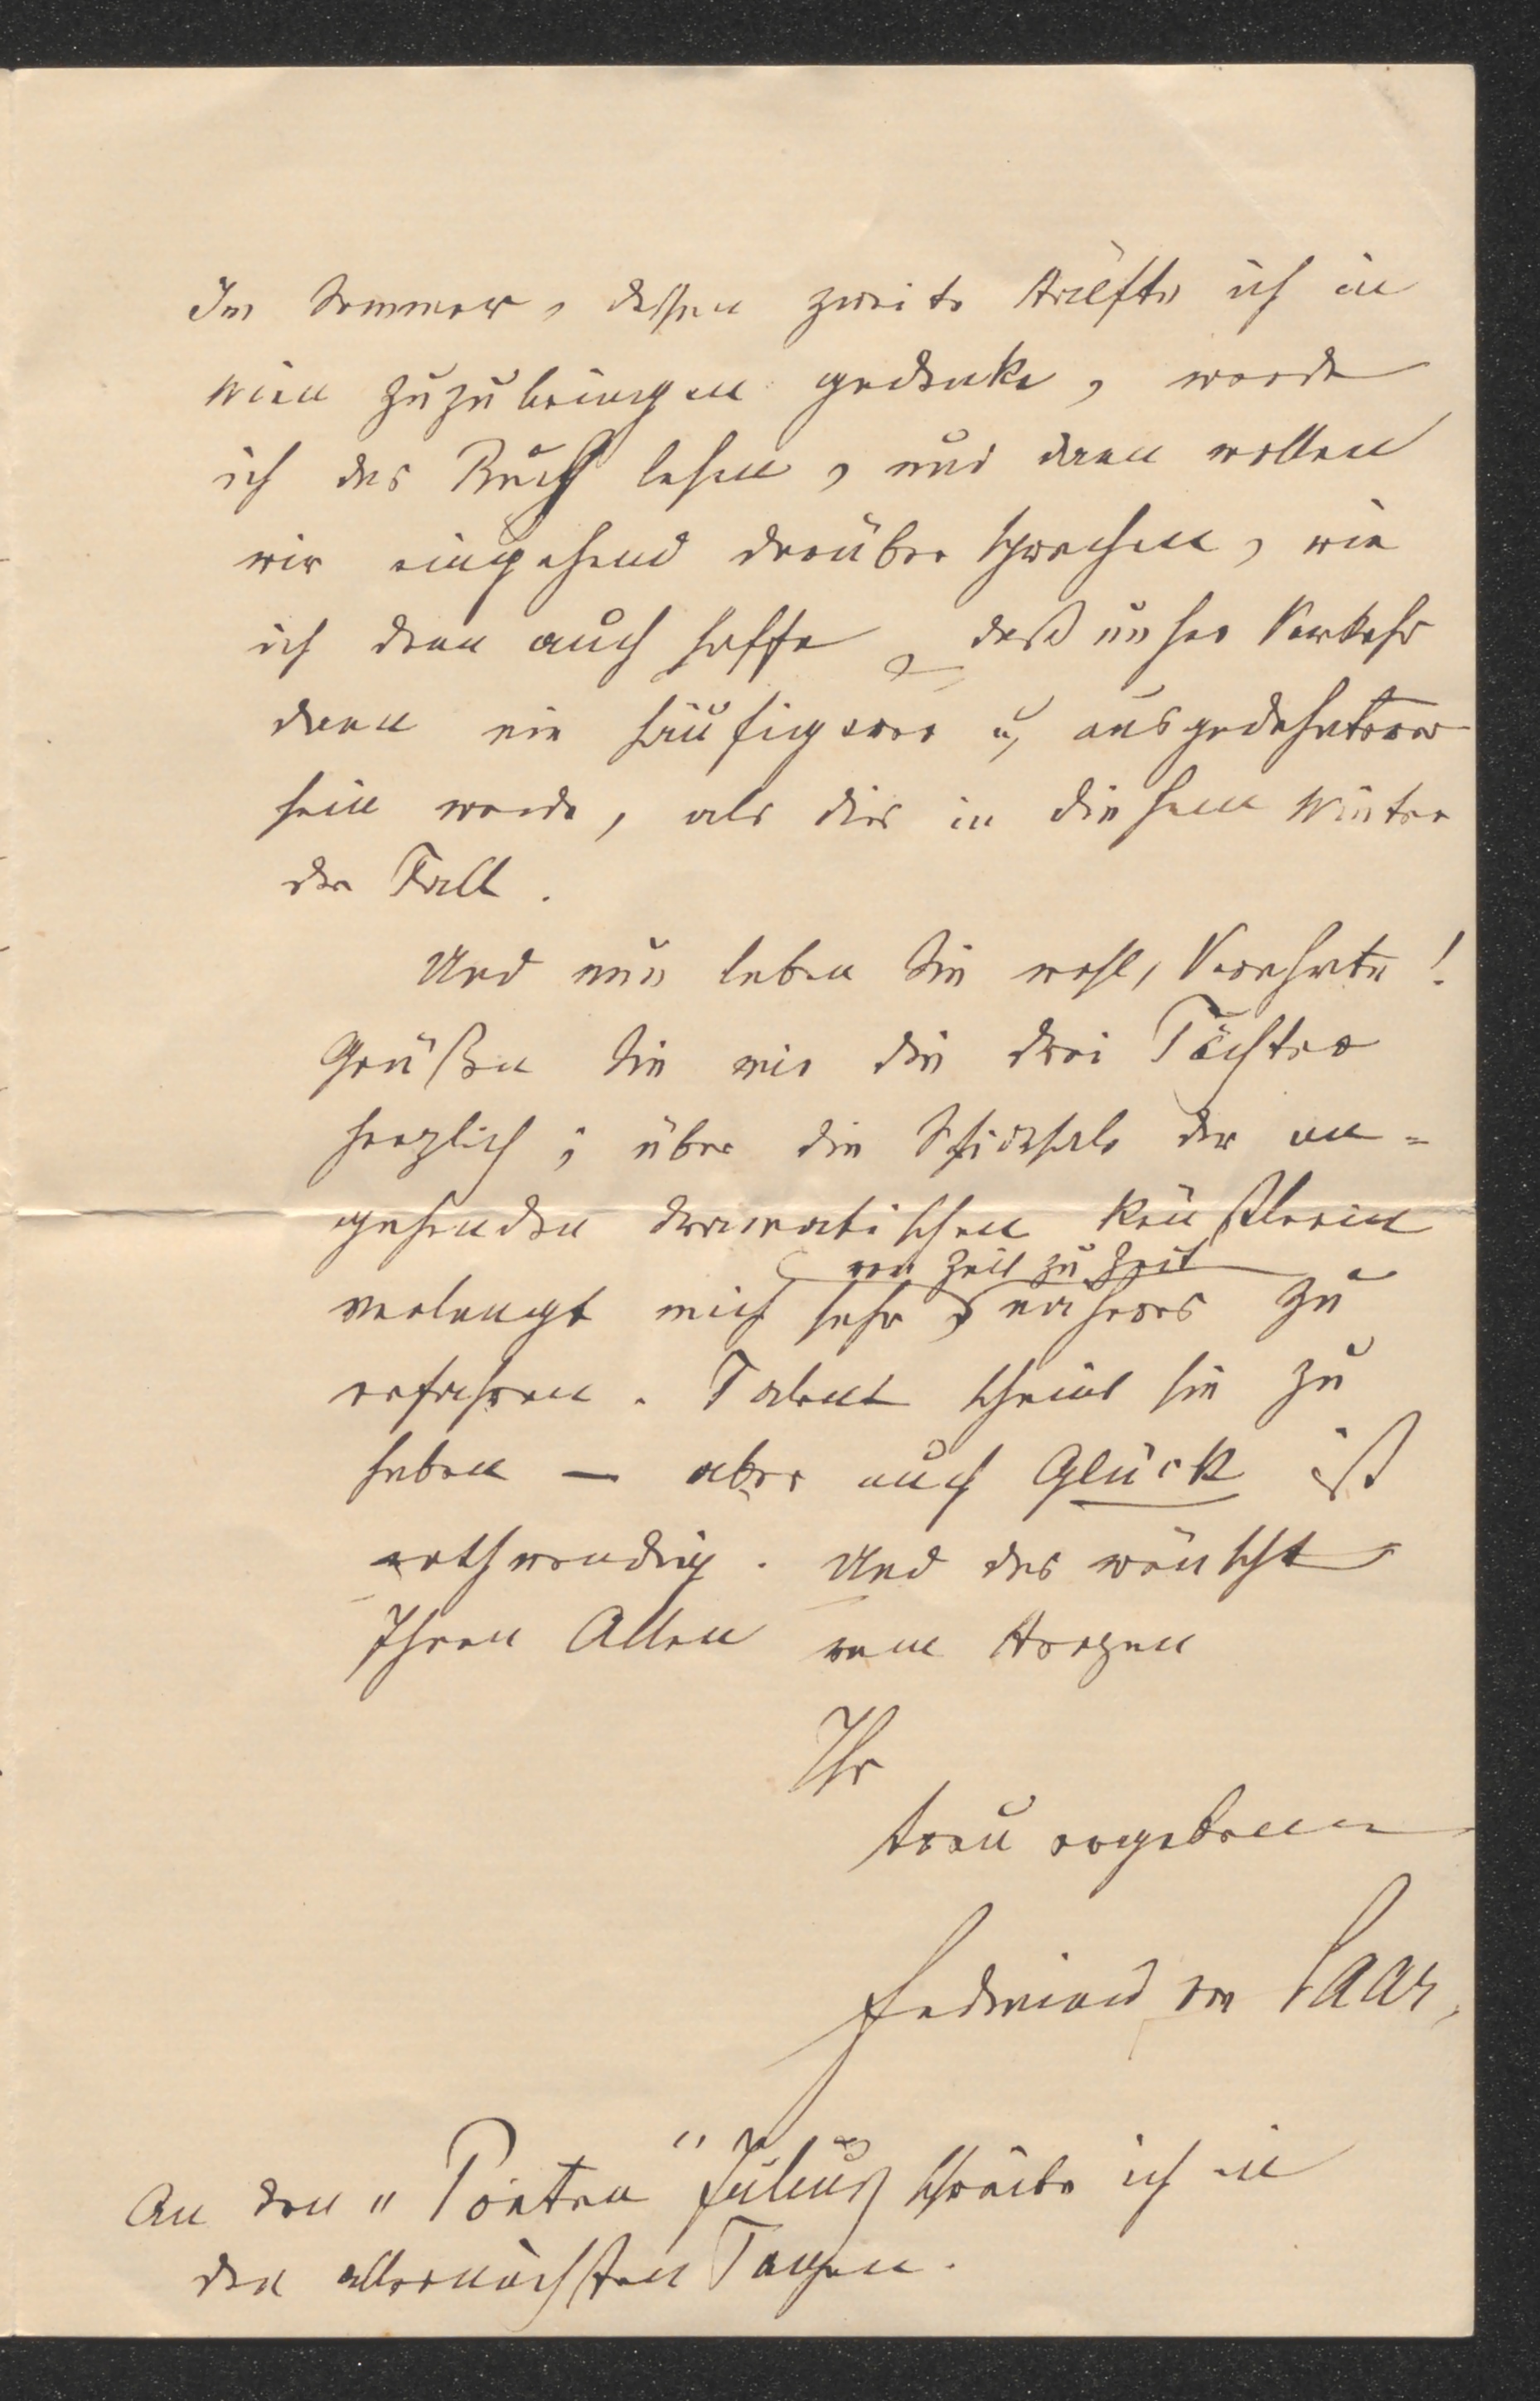 Im Sommer, dessen zweite Hälfte ich in
Wien zuzubringen gedenke, werde
ich das Buch lesen, und dann wollen
wir eingehend darüber sprechen, wie
ich denn auch hoffe, daß unser Verkehr
dann ein häufigerer u, ausgedehnterer
sein werde, als dies in diesem Winter
der Fall.
Und nun leben Sie wohl, Verehrte!
Grüßen Sie mir die drei Töchter
herzlich; über die Schicksale der an=
gehenden dramatischen Künstlerin
von Zeit zu Zeit
verlangt mich sehr näheres zu
erfahren. Talent scheint sie zu
haben — aber auch Glück ist
nothwendig. Und das wünscht
Ihnen Allen vom Herzen
Ihr
treu ergebener
Ferdinand von Saar.
An den "Poeten" Julius schreibe ich in
den allernächsten Tagen.